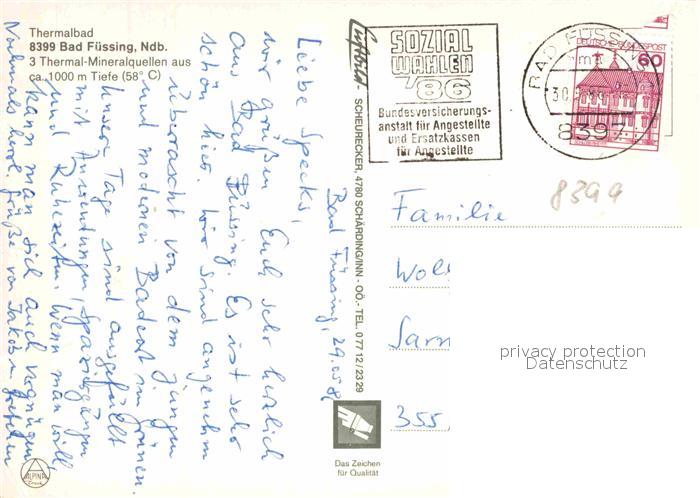 Thermalbad
8399 Bad Füssing, Ndb.
3 Thermal-Mineralquellen aus
ca. 1000 m Tiefe (58° C)
Bad Füssing, 29.05.86
Liebe Specks,
wir grüßen Euch sehr herzlich
aus Bad Füssing. Es ist sehr
schön hier. Wir sind angenehm
überrascht von dem jungen
und modernen Badeort im Grünen.
Unsere Tage sind ausgefüllt
mit Anwendungen, Spaziergängen
und Ruhezeiten. Wenn man will,
kann man sich auch vergnügen.
Nochmals herzl. Grüße von Jakob u.
ALPINA
Druck
Luftbild - SCHEURECKER, 4780 SCHÄRDING/INN - OÖ. - TEL. 0 77 12 / 23 29
Das Zeichen
für Qualität
SOZIAL
WAHLEN
'86
Bundesversicherungs-
anstalt für Angestellte
und Ersatzkassen
für Angestellte
BAD FÜSSING
30.
8397
DEUTSCHE BUNDESPOST
60
8399
Familie
Wol
Sarm
355
privacy protection
Datenschutz